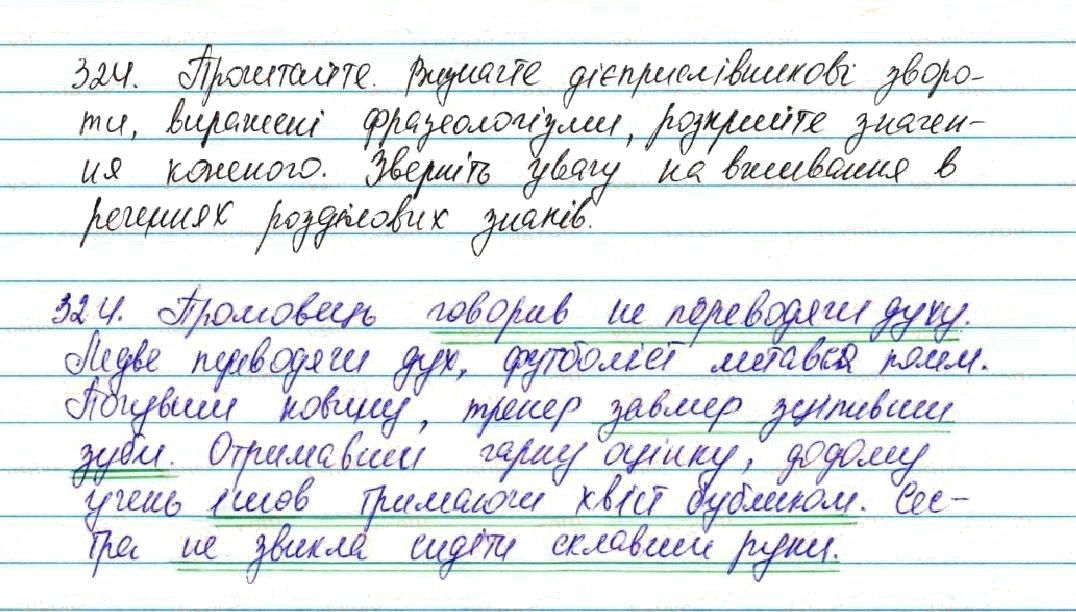 324. Прочитайте. Визначте дієприслівникові зворо-
ти, виражені фразеологізми, розкрийте значен-
ня кожного. Зверніть увагу на вживання в
реченнях розділових знаків.
324. Промовець говорив не переводячи духу.
Ледве переводячи дух, футболіст метався полем.
Почувши новину, тренер завмер зціпивши
зуби. Отримавши гарну оцінку, додому
учень ішов тримаючи хвіст бубликом. Сес-
тра не звикла сидіти склавши руки.